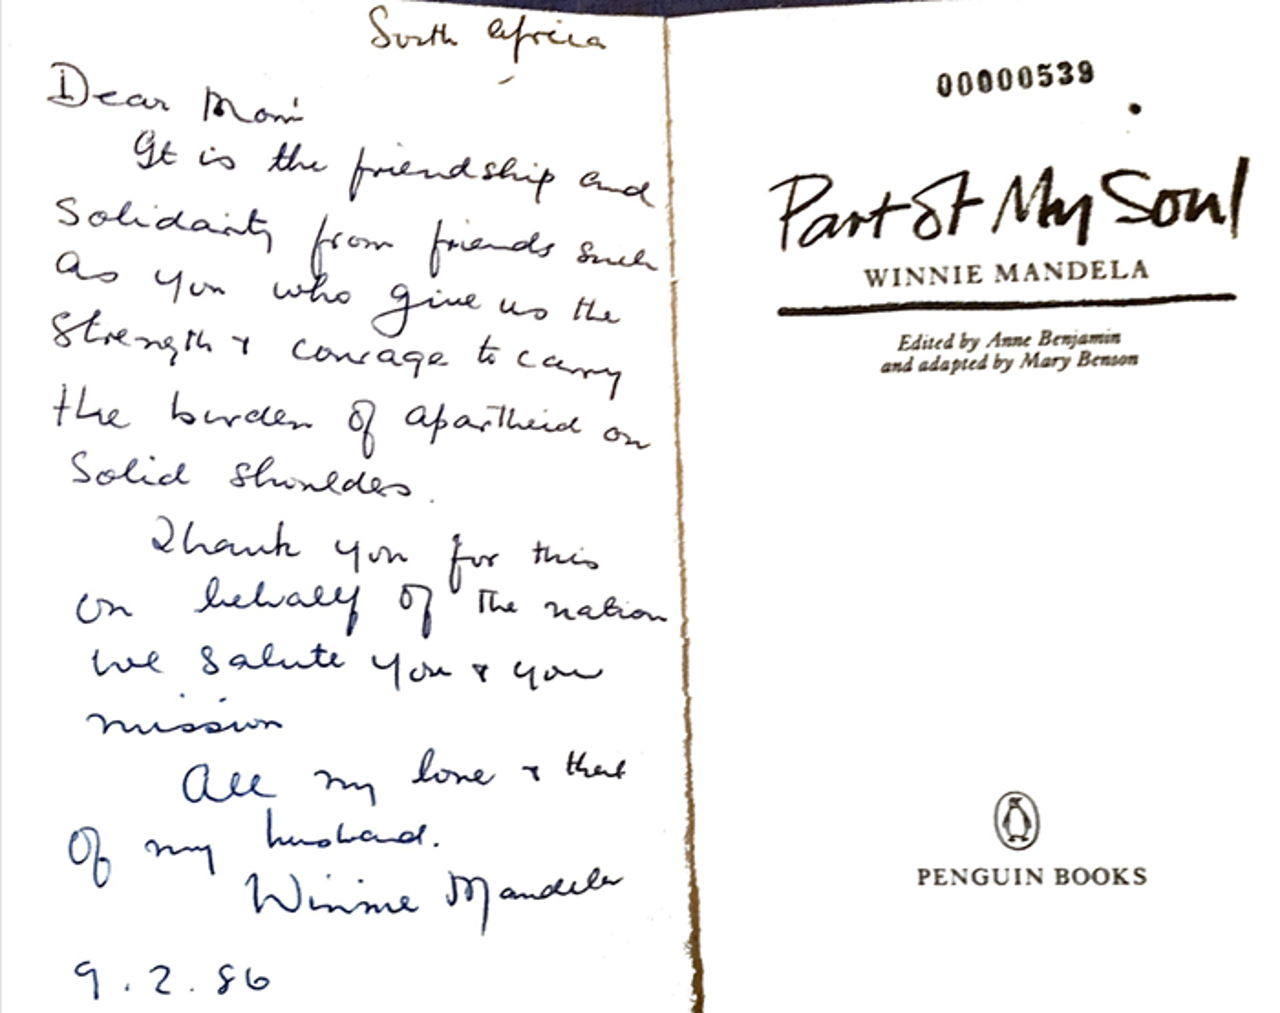 South Africa
Dear Moni
It is the friendship and
Solidarity from friends such
as you who give us the
strength & courage to carry
the burden of apartheid on
Solid shoulders.
Thank you for this
on behalf of the nation
we salute you & your
mission
All my love & that
of my husband.
Winnie Mandela
9.2.86
00000539
Part of My Soul
WINNIE MANDELA
Edited by Anne Benjamin
and adapted by Mary Benson
PENGUIN BOOKS